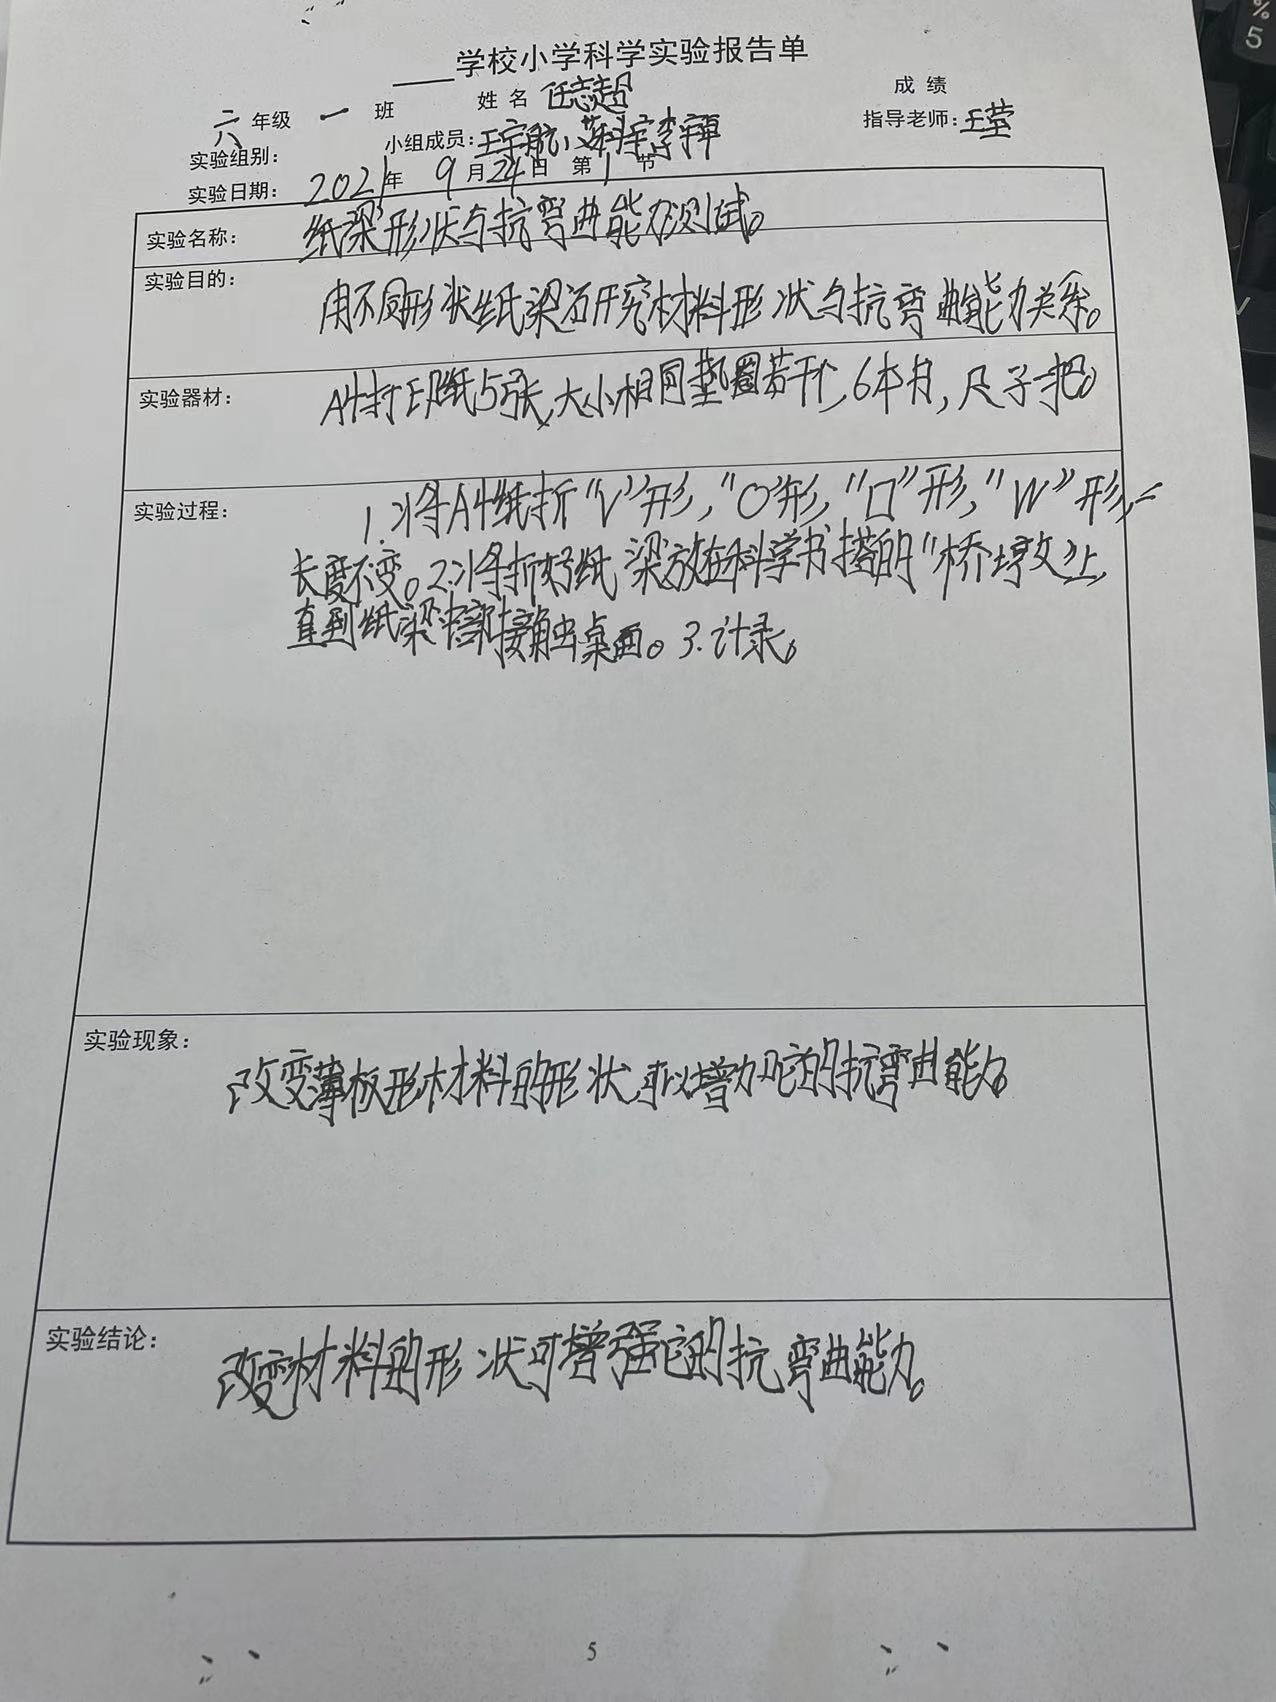 学校小学科学实验报告单
六年级 一 班 姓名 任志超 成绩
实验组别: 小组成员:王宇航、苏科宇李宇 指导老师:王莹
实验日期: 2021年 9月24日 第1节
实验名称: 纸梁形状与抗弯曲能力测试。
实验目的:
用不同形状纸梁研究材料形状与抗弯曲能力关系。
实验器材: A4打印纸5张,大小相同垫圈若干个,6本书,尺子一把。
实验过程: 1.将A4纸折“V”形,“O”形,“口”形,“W”形,
长度不变。2.将折好纸梁放在科学书搭的“桥墩”上,
直到纸梁中部接触桌面。3.计录。
实验现象:
改变薄板形材料的形状,可以增加它的抗弯曲能力。
实验结论:
改变材料的形状可增强它的抗弯曲能力。
5
%
5